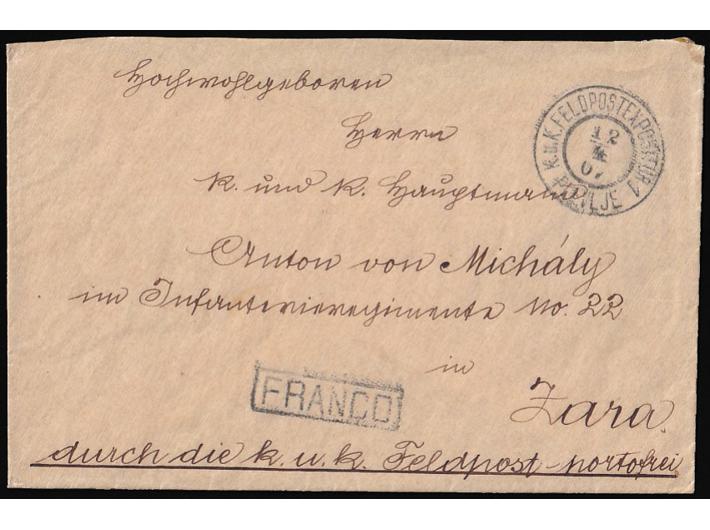 Hochwohlgeboren
Herrn
K. und K. Hauptmann
Anton von Michály
im Infanterieregimente No. 22
in
Zara
durch die k. u. k. Feldpost portofrei
K.u.K. FELDPOSTEXPOSITUR 1
12
4
07
PLEVLJE
FRANCO